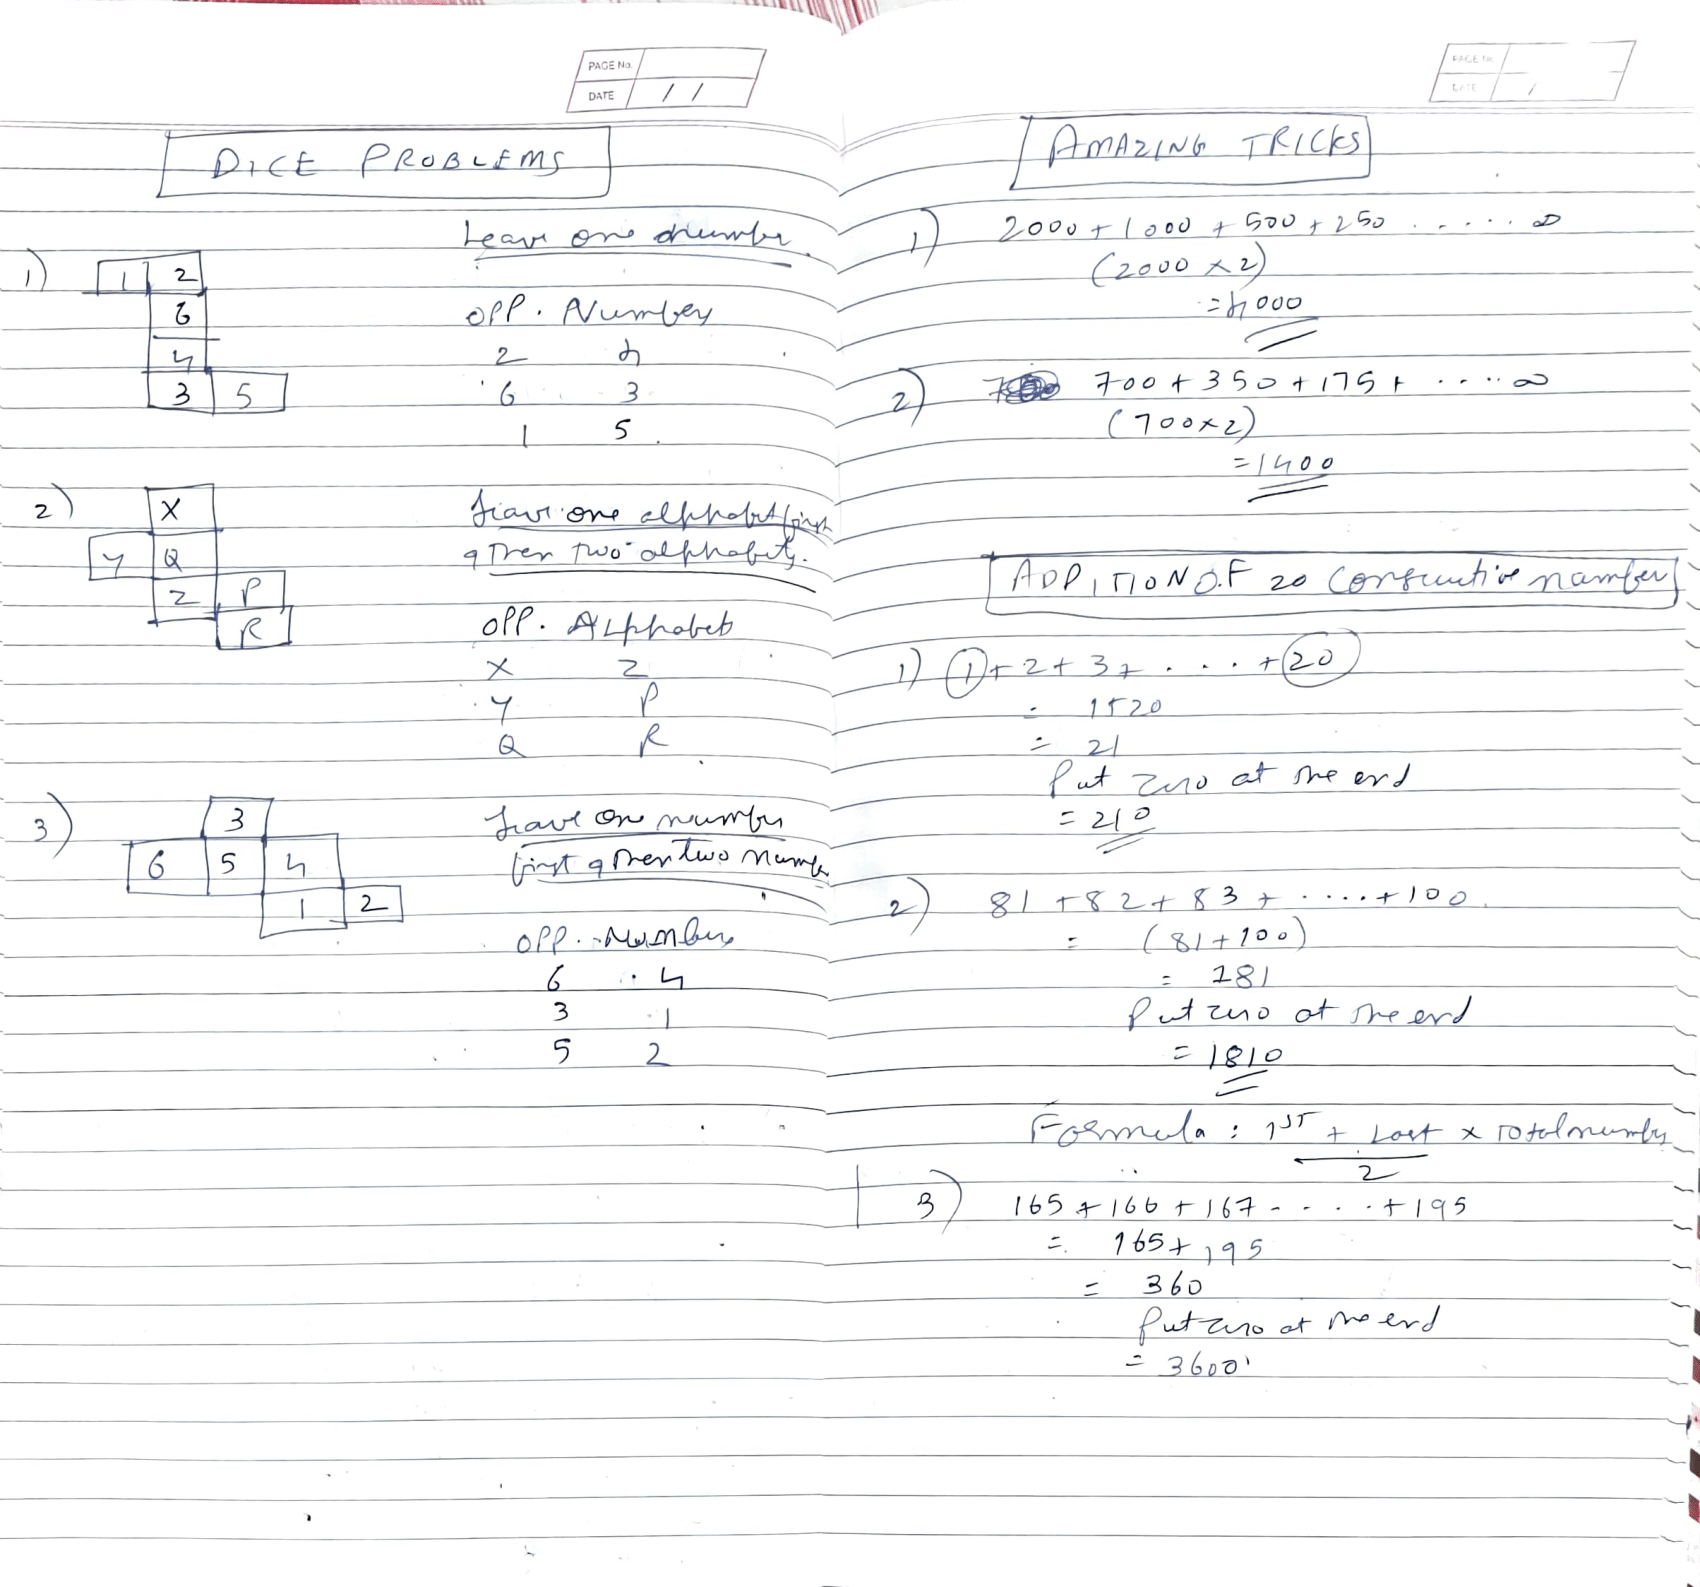 PAGE No.
DATE / /
DICE PROBLEMS
Leave one number
1) 1 2
6
4
3 5
OPP. Number
2 4
6 3
1 5
2) X
Y Q
Z P
R
Leave one alphabet first
& then two alphabets.
OPP. Alphabet
X Z
Y P
Q R
3) 3
6 5 4
1 2
Leave one number
first & then two number
OPP. Number
6 4
3 1
5 2
PAGE No.
DATE /
AMAZING TRICKS
1) 2000 + 1000 + 500 + 250 ..... ∞
(2000 x 2)
= 4000
2) 700 + 350 + 175 + ..... ∞
(700x2)
= 1400
ADDITION OF 20 Consecutive number
1) 1 + 2 + 3 + .... + 20
= 1+20
= 21
Put zero at the end
= 210
2) 81 + 82 + 83 + ..... + 100
= (81 + 100)
= 181
Put zero at the end
= 1810
Formula : 1ST + Last x Total number
2
3) 165 + 166 + 167 - .... + 195
= 165 + 195
= 360
Put zero at the end
= 3600